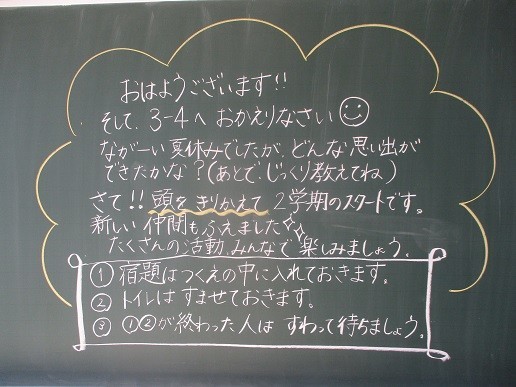 おはようございます!!
そして、3-4へ おかえりなさい
ながーい 夏休みでしたが、どんな思い出が
できたかな?(あとで、じっくり教えてね)
さて!! 頭を きりかえて 2学期のスタートです。
新しい 仲間もふえました
たくさんの活動、みんなで 楽しみましょう。
① 宿題はつくえの中に入れておきます。
② トイレは すませておきます。
③ ①②が終わった人は すわって待ちましょう。